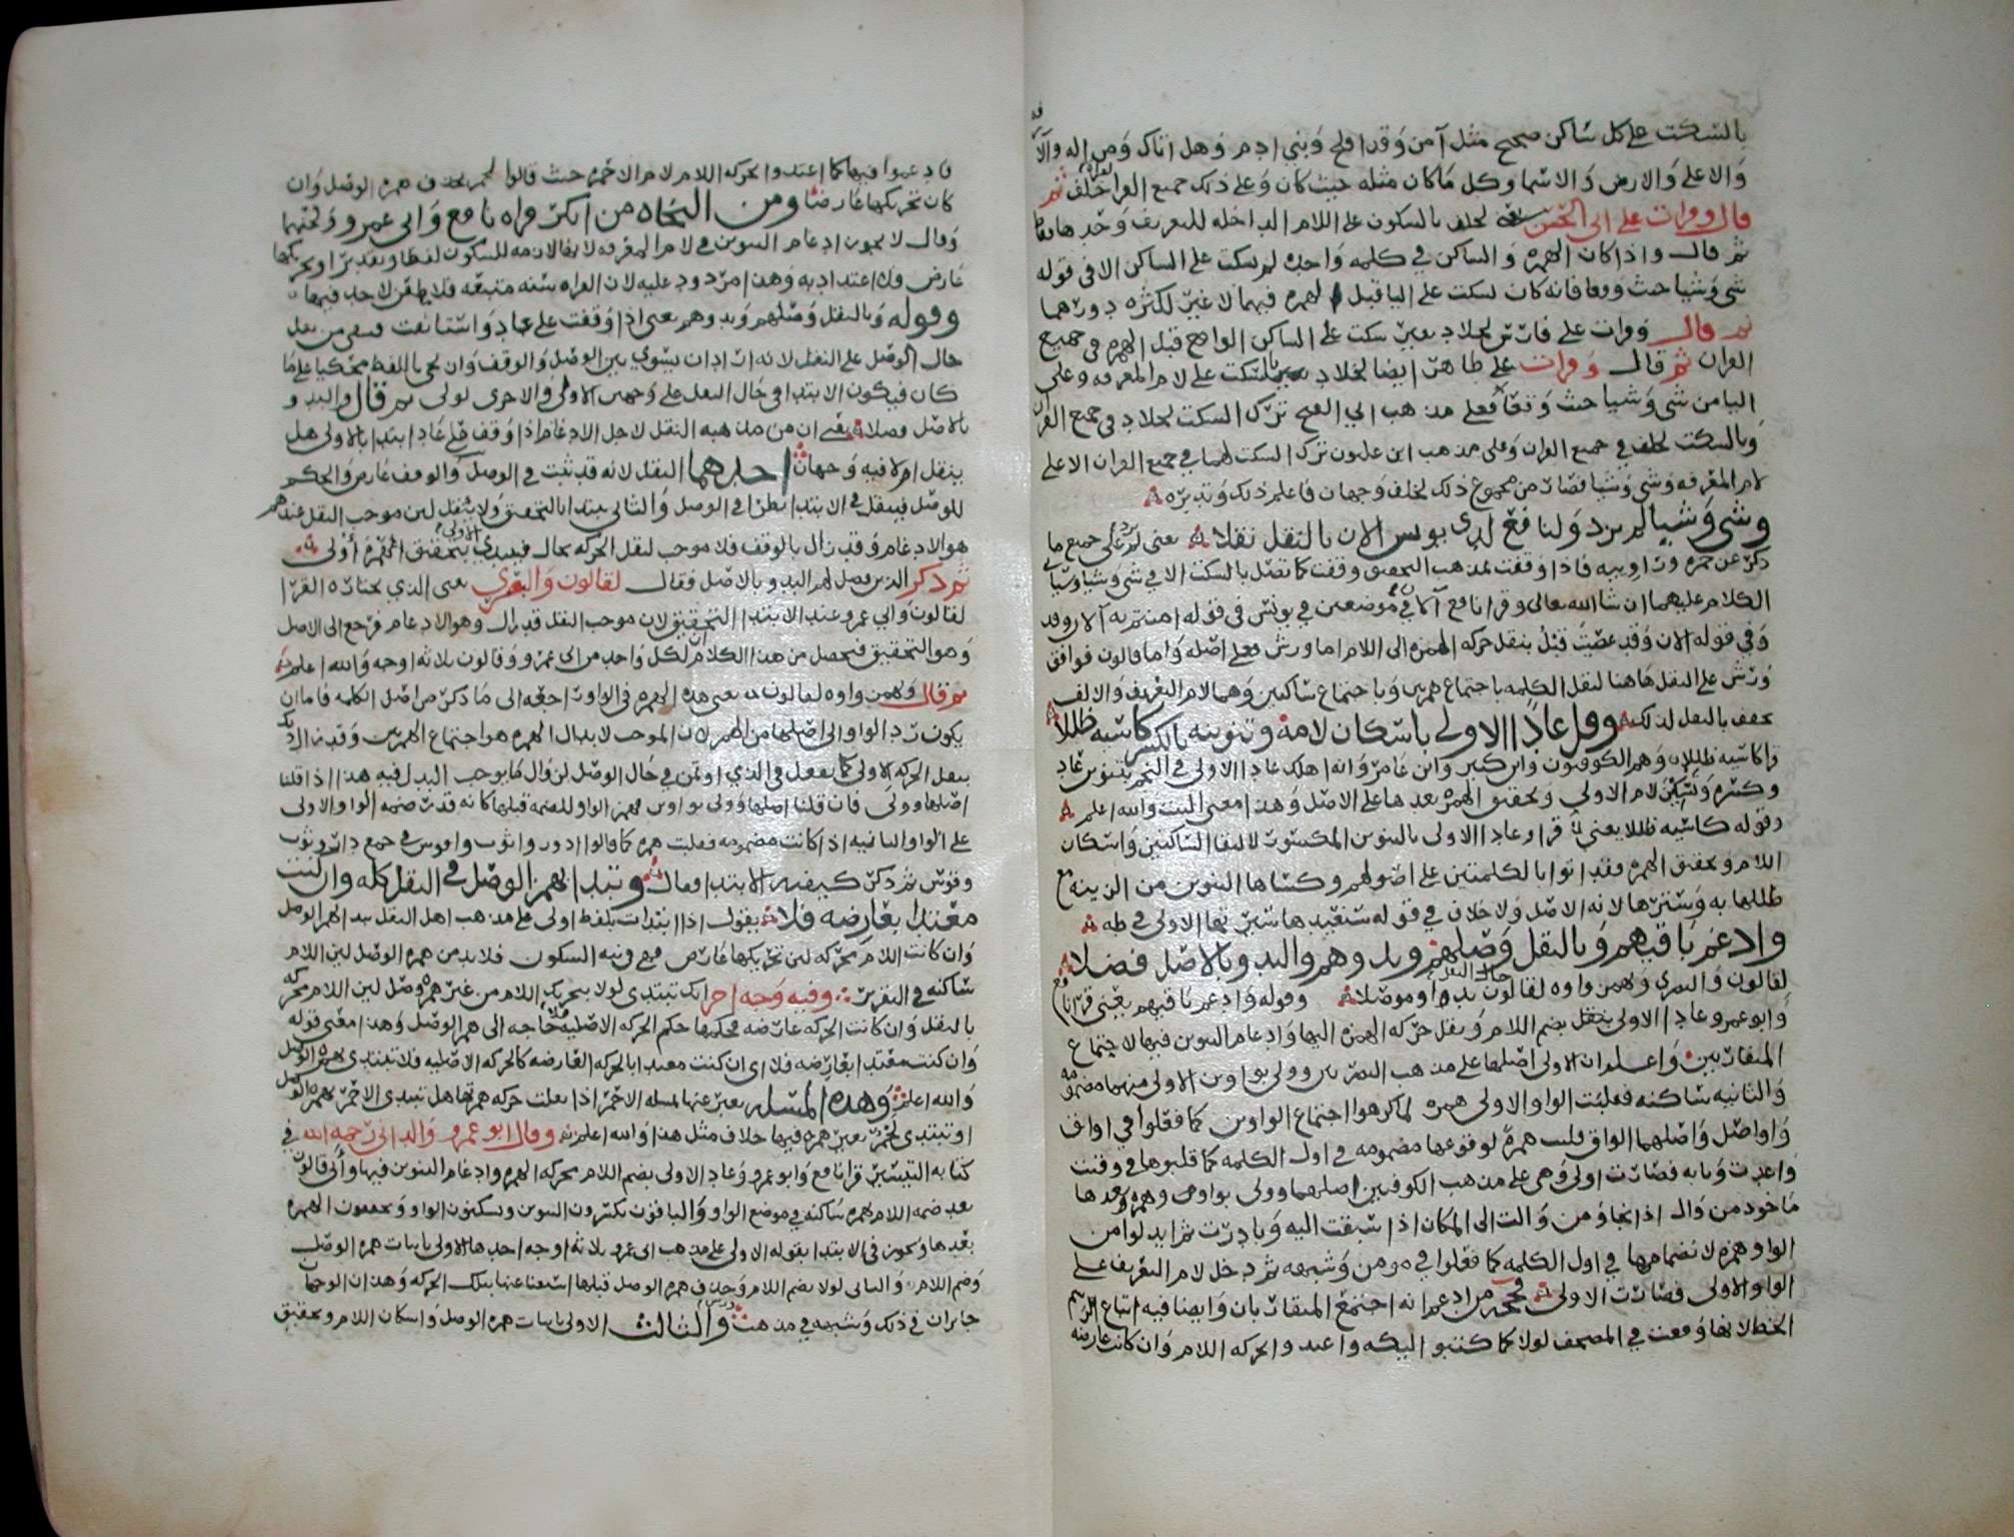 بالسكت على كل ساكن صحيح مثل آمن وقد افلح وبني ادم وهل اتاك ومن اله والا
والاعلى والارض والاسما وكل ما كان مثله حيث كان وعلى ذلك جميع خلف ثم
قال وقرات على ابي الحسن لخلف بالسكون على اللام الداخله للتعريف وحدها
ثم قال واذا كان الهمزه والساكن في كلمه واحده لم يسكت على الساكن الا في قوله
شي وشيا حيث وقعا فانه كان يسكت على اليا قبل الهمزه فيهما لا غير لكثره دورهما
ثم قال وقرات على فارس لخلاد بغير سكت على الساكن الواقع قبل الهمزه في جميع
القران ثم قال وقرات على طاهر ايضا لخلاد بالسكت على لام المعرفه وعلى
اليا من شي وشيا حيث وقعا فعلى مذهب ابي الفتح ترك السكت لخلاد في جميع القران
وبالسكت لخلف في جميع القران وعلى مذهب ابن غلبون ترك السكت لهما في جميع القران الا على
لام المعرفه وشي وشيا فصار من مجموع ذلك لخلف وجهان فاعلم ذلك وتدبره
وشي وشيا لم يزد ولنافع لدى يونس الان بالنقل نقلا يعني لم يزد على جميع ما
ذكر عن حمزه وراويه فاذا وقفت لمذهب التحقيق وقفت كما تصل بالسكت الا في شي وشيا وسيا
الكلام عليهما ان شا الله تعالى وقرا نافع في موضعين في يونس في قوله امنتم به آلان وقد
وفي قوله الان وقد عصيت قبل بنقل حركه الهمزه الى اللام اما ورش فعلى اصله واما قالون فوافق
ورش على النقل هاهنا لثقل الكلمه باجتماع همزتين وباجتماع ساكنين وهما لام التعريف والالف
فخفف بالنقل لذلك وقل عادا الاولى باسكان لامه وتنوينه بالكسر كاسيه ظللا
قرا كاسيه ظلله وهم الكوفيون وابن كثير وابن عامر وانه اهلك عادا الاولى في النجم بتنوين عاد
وكسره وتسكين لام الاولى وتحقيق الهمزه بعدها على الاصل وهذا معنى البيت والله اعلم
وقوله كاسيه ظللا يعني قرا وعادا الاولى بالتنوين المكسور لالتقا الساكنين واسكان
اللام وتحقيق الهمزه فقد اتوا بالكلمتين على اصولهم وكساها التنوين من الزينه مع
ظللها به وسترها لانه الاصل ولا خلاف في قوله سنعيدها سيرتها الاولى في طه
وادغم باقيهم وبالنقل وصلهم وبدوهم والبدو بالاصل فضلا
لقالون والبصري وتهمز واوه لقالون حال النقل بدءا وموصلا وقوله وادغم باقيهم يعني قرا نافع
وابو عمرو عادا الاولى بضم اللام ونقل حركه الهمزه اليها وادغام التنوين فيها لاجتماع
المتقاربين واعلم ان الاولى اصلها على مذهب البصريين وولى بواوين الاولى منهما مضمومه
والثانيه ساكنه فقلبت الواو الاولى همزه لما كرهوا اجتماع الواوين كما فعلوا في اواق
واواصل واصلهما الواق قلبت همزه لوقوعها مضمومه في اول الكلمه كما قلبوها في وقتت
واعدت وبابه فصارت اولى وهي على مذهب الكوفيين اصلهما وولى بواو وهمزه بعدها
ماخوذ من وال اذا نجا ومن والت الى المكان اذا سبقت اليه وبادرت ثم ابدلوا من
الواو همزه لانضمامها في اول الكلمه كما فعلوا في مومن وشبهه ثم دخل لام التعريف على
الواو الاولى فصارت الاولى فحجه من ادغم انه اجتمع المتقاربان وايضا فيه اتباع الرسم
الخط لانها وقعت في المصحف لولا كما كتبوا ليكه واعتدوا بحركه اللام وان كانت عارضه
فادغموا فيها كما اعتدوا بحركه اللام لام الاحمر حيث قالوا لحمر بحذف همزه الوصل وان
كان تحريكها عارضا ومن النحاه من انكر قراه نافع وابي عمرو ولحنهما
وقال لا يجوز ادغام التنوين في لام المعرفه لانها لازمه للسكون لفظا وتقديرا وتحريكها
عارض ولا اعتداد به وهذا مردود عليه لان القراه سنه متبعه فلا مطعن لاحد فيها
وقوله وبالنقل وصلهم وبدوهم يعني اذا وقفت على عاد واستانفت فتبقى من نقل
حال الوصل على النقل لانه اراد ان يسوي بين الوصل والوقف وان يحي باللفظ محكيا على ما
كان فيكون الابتدا في حال النقل على وجهين الاولى والاخرى لولى ثم قال والبدو
بالاصل فضلا يعني ان من مذهبه النقل لاجل الادغام اذا وقف على عاد ابتدا بالاولى هل
ينقل ام لا فيه وجهان احدهما النقل لانه قد ثبت في الوصل والوقف عارض والحكم
للوصل فينقل في الابتدا نظرا في الوصل والثاني يبتدا بالتحقيق ولا ينقل لين موجب النقل عندهم
هو الادغام وقد زال بالوقف فلا موجب لنقل الحركه بحال فيبتدي الاولى بتحقيق الهمزه اولى
ثم ذكر الذين فضل لهم البدو بالاصل فقال لقالون والبصري يعني الذي يختاره القرا
لقالون وابي عمرو عند الابتدا التحقيق لان موجب النقل قد زال وهو الادغام فرجع الى الاصل
وهو التحقيق فتحصل من هذا الكلام ان لكل واحد من ابي عمرو وقالون ثلاثه اوجه والله اعلم
ثم قال وتهمز واوه لقالون يعني هذه الهمزه في الواو راجعه الى ما ذكر من اصل الكلمه فاما ان
يكون رد الواو الى اصلها من الهمز لان الموجب لابدال الهمزه هو اجتماع الهمزتين وقد زال ذلك
بنقل الحركه الاولى كما يفعل في الذي اوتمن في حال الوصل لزوال ما يوجب البدل فيه هذا اذا قلنا
اصلها وولى فان قلنا اصلها وولى بواوين فهمز الواو للضمه قبلها كانه قدر ضمه الواو الاولى
على الواو الثانيه اذا كانت مضمومه فقلبت همزه كما قالوا ادور واثوب واقوس في جمع دار وثوب
وقوس ثم ذكر كيفيه الابتدا فقال وتبدا بهمز الوصل في النقل كله وان كنت
معتدا بعارضه فلا يقول اذا ابتدات بلفظ اولى على مذهب اهل النقل تبدا بهمز الوصل
وان كانت اللام محركه لين تحريكها عارض فهي في نيه السكون فلا بد من همزه الوصل لين اللام
ساكنه في التقدير وفيه وجه اخر انك تبتدى لولا بتحريك اللام من غير همزه وصل لين اللام محركه
بالنقل وان كانت الحركه عارضه فحكمها حكم الحركه الاصليه فلا حاجه الى همز الوصل وهذا معنى قوله
وان كنت معتدا بعارضه فلا اي ان كنت معتدا بالحركه العارضه كالحركه الاصليه فلا تبتدى بهمزه الوصل
والله اعلم وهذه المسله يعبر عنها بمسله الاحمر اذا نقلت حركه همزتها هل تبتدى الاحمر بهمزه الوصل
او تبتدى لحمر بغير همزه فيها خلاف مثل هذا والله اعلم وقال ابو عمرو والداني رحمه الله في
كتابه التيسير قرا نافع وابو عمرو وعاد الاولى بضم اللام بحركه الهمزه وادغام التنوين فيها واتى قالون
بعد ضمه اللام بهمزه ساكنه في موضع الواو والباقون يكسرون التنوين ويسكنون الواو ويحققون الهمزه
بعدها ويجوز في الابتدا بقوله الاولى على مذهب ابي عمرو ثلاثه اوجه احدها الاولى باثبات همزه الوصل
وضم اللام والثاني لولا بضم اللام وحذف همزه الوصل قبلها استغنا عنها بتلك الحركه وهذان الوجهان
جايزان في ذلك وشبهه في مذهب ورش والثالث الاولى باثبات همزه الوصل واسكان اللام وتحقيق